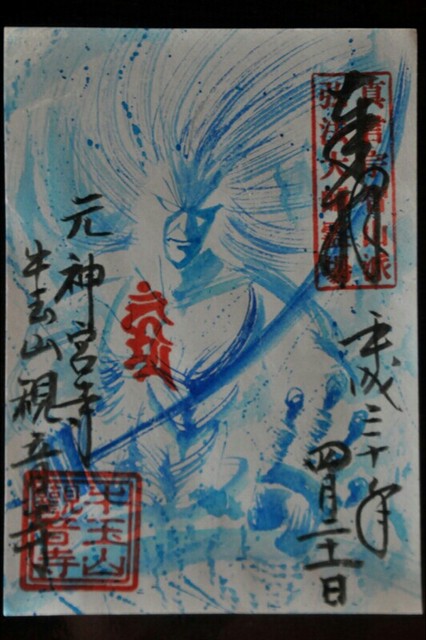 奉拝
平成三十年
四月二十一日
元神宮寺
牛玉山観音寺
牛玉山
觀音寺